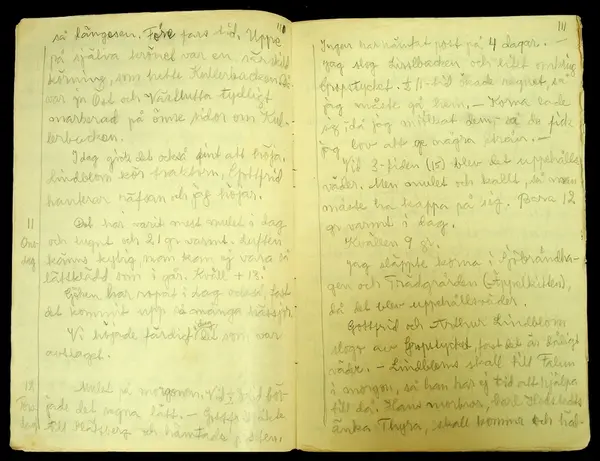 110
så längesen. Före fars tid. Uppe
på själva krönet var en särskild
höjning, som hette Kullerbacken. Då
var ju Öst och Västlutta tydligt
markerad på ömse sidor om Kul-
lerbacken.
Idag gick det också fint att höja.
Lindblom kör traktorn, Gottfrid
hanterar räfsan och jag höjar.
11
Ons-
dag
Det har varit mest mulet i dag
och lugnt och 21 gr. varmt. Luften
känns kylig nom kom ej vara så
lättklädd som i går. Kväll + 13.
Göken har ropat i dag också, fast
det kommit upp så många
Vi höjde färdigt det som var
avslaget.
Mulet på morgonen. Vid
jade det regna lätt. – Gottfrid åkte
till och hämtade posten.
111
Ingen har hämtat post på 4 dagar. –
Jag slog Lindbacken och litet omkring
Gropstycket. ½ 11-tid ökade regnet, så
jag måste gå hem. – Korna lade
sig, då jag mjölkat dem, så de fick
jag lov att ge några strån. –
Vid 3-tiden (15) blev det uppehålls-
väder. Men mulet och kallt, så man
måste ha kappa på sig. Bara 12
gr. varmt i dag.
Kvällen 9 gr.
Jag släppte korna i
hagen och Trädgården (Äppelkullen),
då det blev uppehållsväder.
Gottfrid och Arthur Lindblom
slogo av Gropstycket, fast det är dåligt
väder. – Lindbloms skall till Falun
i morgon, så han har ej tid att hjälpa
till då. Hans morbror, Carl
änka Thyra, skall komma och